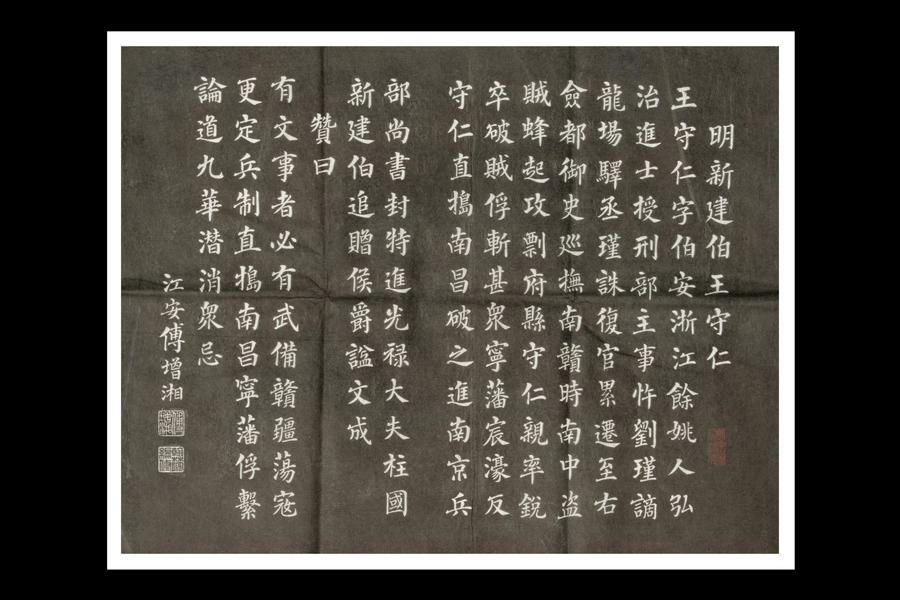 明新建伯王守仁
王守仁字伯安浙江餘姚人弘
治進士授刑部主事忤劉瑾謫
龍場驛丞瑾誅復官累遷至右
僉都御史巡撫南贛時南中盜
賊蜂起攻剽府縣守仁親率銳
卒破賊俘斬甚衆寧藩宸濠反
守仁直搗南昌破之進南京兵
部尚書封特進光祿大夫柱國
新建伯追贈侯爵謚文成
贊曰
有文事者必有武備贛疆蕩寇
更定兵制直搗南昌寧藩俘繫
論道九華潛消衆忌
江安傅增湘